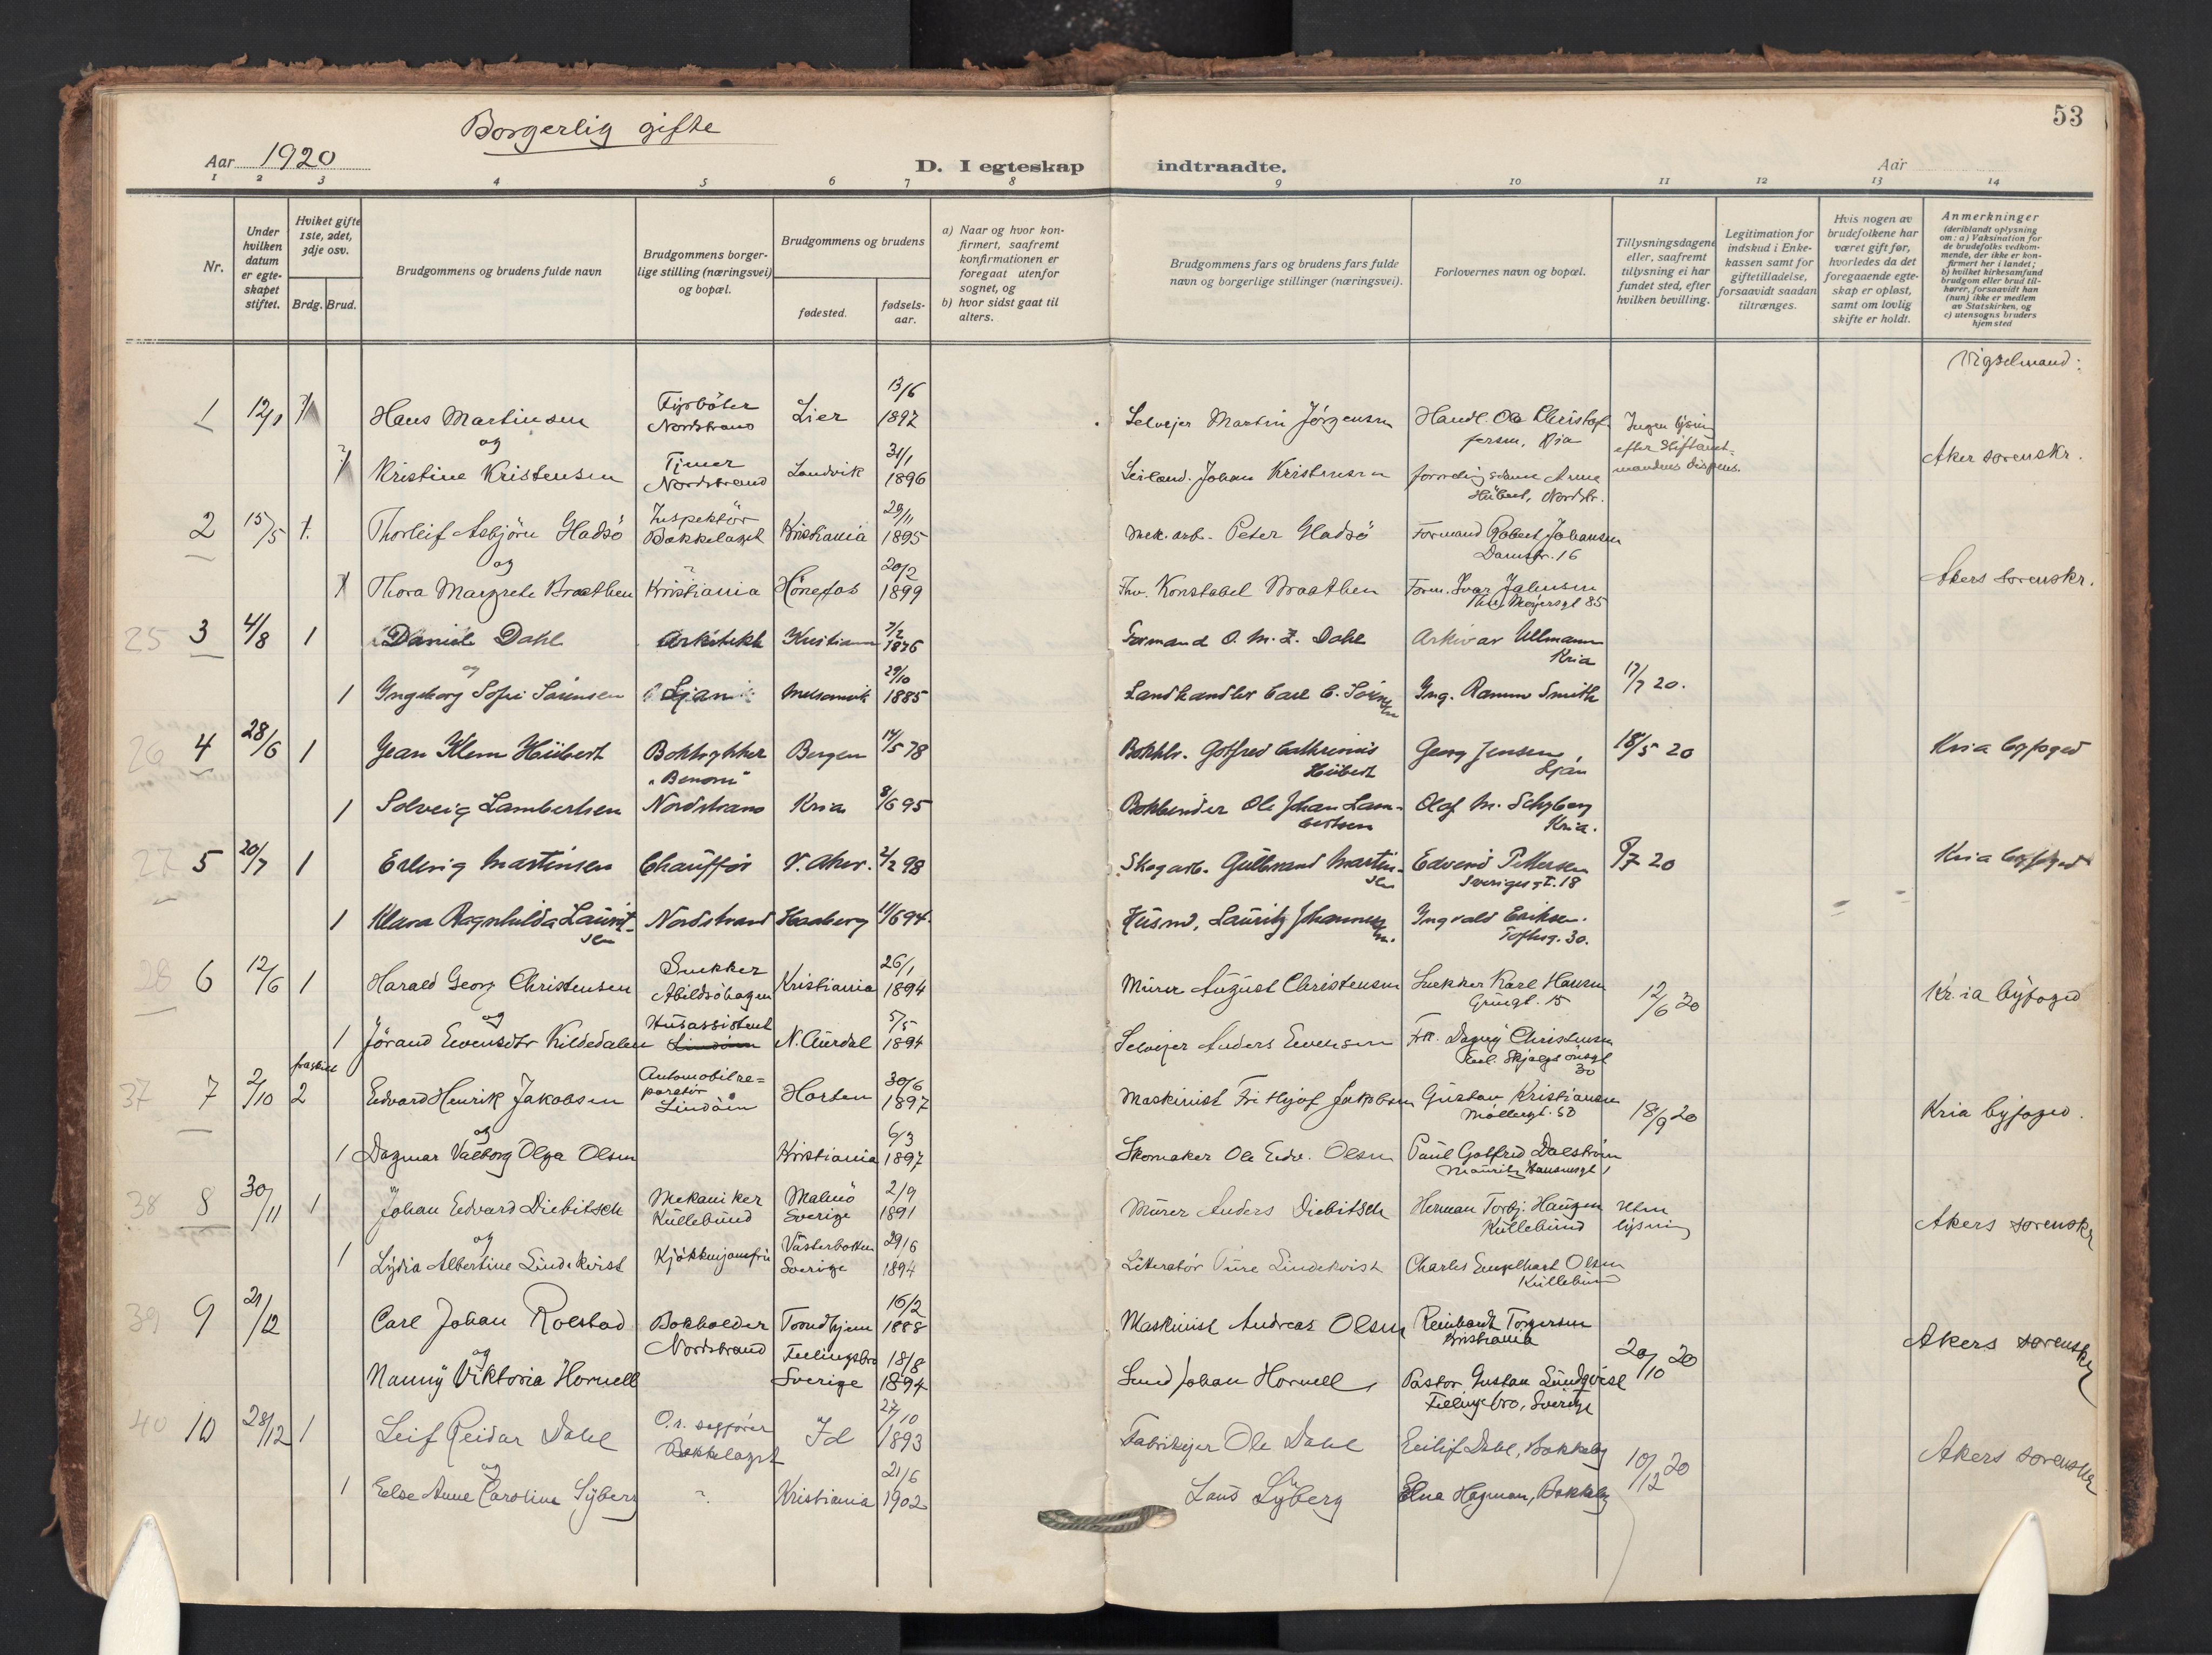 53
Borgerlig gifte
Aar 1920
D. I egteskap indtraadte.
Aar
1 2 3 4 5 6 7 8 9 10 11 12 13 14
Nr.
Under hvilken datum er egteskapet stiftet.
Hviket gifte 1ste, 2det, 3dje osv.
Brdg. Brud.
Brudgommens og brudens fulde navn
Brudgommens borgerlige stilling (næringsvei) og bopæl.
Brudgommens og brudens
fødested.
fødsels-aar.
a) Naar og hvor konfirmert, saafremt konfirmationen er foregaat utenfor sognet, og
b) hvor sidst gaat til alters.
Brudgommens fars og brudens fars fulde navn og borgerlige stillinger (næringsvei).
Forlovernes navn og bopæl.
Tillysningsdagene eller, saafremt tillysning ei har fundet sted, efter hvilken bevilling.
Legitimation for indskud i Enkekassen samt for giftetilladelse, forsaavidt saadan tiltrænges.
Hvis nogen av brudefolkene har været gift før, hvorledes da det foregaaende egteskap er opløst, samt om lovlig skifte er holdt.
Anmerkninger (deriblandt oplysning om: a) Vaksination for de brudefolks vedkommende, der ikke er konfirmert her i landet; b) hvilket kirkesamfund brudgom eller brud tilhører, forsaavidt han (hun) ikke er medlem av Statskirken, og c) utensogns bruders hjemsted
Vigselmand:
1 12/1 Hans Martinsen Fyrbøter Nordstrand Lier 13/6 1897 Selvejer Martin Jørgensen Handl. Ole Christoffersen, Kria Ingen lysning efter Stiftamtmandens dispens.
og
Kristine Kristensen Tjener Nordstrand Landvik 31/1 1896 Johan Kristensen Hübert, Nordstr. Aker sorenskr.
2 15/5 1. Thorleif Asbjörn Gladsö Inspektör Bækkelaget Kristiania 29/11 1895 Mek. arb. Peter Gladsö Formand Robert Johansen 16
og
Thora Margrete Braathen Kristiania Hönefos 20/2 1899 Fhv. Konstabel Braathen Form. Ivar Thv. Meyersgt 85 Akers sorenskr.
25 3 4/8 1 Daniel Dahl Arkitekt Kristiania 1876 Formand O. M. Z. Dahl Arkivar Ullmann Kria
og
1 Ingeborg Sofie Sörensen Ljan Melsomvik 29/10 1885 Landhandler Carl C. Sörensen Ing. Ramm Smith 17/7 20.
26 4 28/6 1 Jean Klem Hübert Boktrykker "Benoni" Bergen 14/5 78 Boktr. Gotfred Cathrinus Hübert Georg Jensen, Ljan 18/5 20 Kria byfoged
1 Solveig Lambertsen Nordstrand Kria 8/6 95 Bokbinder Ole Johan Lambertsen Olaf M. Schyberg Kria.
27 5 20/7 1 Erling Martinsen Chauffør V. Aker. 2/2 98 Skogarb. Gulbrand Martinsen Edvard Pettersen Sverigesgt. 18 9/7 20 Kria byfoged
1 Klara Ragnhilda Lauritsen Nordstrand 11/6 94. Husmd. Lauritz Johannessen. Ingvald Eriksen. Toftesg. 30.
28 6 12/6 1 Harald Georg Christensen Snekker Abildsöhagen Kristiania 26/1 1894 Murer August Christensen Snekker Karl Hansen Grüngt. 15 12/6 20 Kr.ia byfoged
og
1 Jörand Evensdtr Kildedalen Husassistent N. Aurdal 5/5 1894 Selvejer Anders Evensen Frk. Dagny Christensen Erl. Skjalgsönsgt 30
37 7 2/10 fraskilt 2 Edvard Henrik Jakobsen Automobilreparatör Lindöin Horten 30/6 1897 Maskinist Frithjof Jakobsen Gustav Kristiansen Möllergt. 58 18/9 20 Kria byfoged.
og
1 Dagmar Valborg Olga Olsen Kristiania 6/3 1897 Skomaker Ole Edv. Olsen Paul Gotfred Dalström Mauritz Hansensgt 1
38 8 30/11 1 Johan Edvard Diebitsch Mekaniker Kullebund Malmö Sverige 2/9 1891 Murer Anders Diebitsch Herman Torbj. Haugen Kullebund Uten lysning Akers sorenskr
og
1 Lydia Albertine Lindekvist Kjøkkenjomfru Västerbotten Sverige 29/6 1894 Litteratör Ture Lindekvist Charles Engelhart Olsen Kullebund
39 9 21/12 Carl Johan Rolstad Bokholder Nordstrand Trondhjem 16/2 1888 Maskinist Andreas Olsen Reinhardt Torgersen Kristiania 20/10 20 Akers sorenskr
og
Nanny Viktoria Hornell Fellingsbro Sverige 18/8 1894 Smed Johan Hornell, Pastor Gustav Lundqvist Fellingsbro, Sverige
40 10 28/12 1 Leif Reidar Dahl O.r. sagförer Bækkelaget Id 27/10 1893 Fabrikejer Ole Dahl Eilif Dahl, Bækkelag 10/12 20 Akers sorenskr
og
1 Else Anne Caroline Syberg Kristiania 21/6 1902 Syberg Elna Hagman, Bækkelag